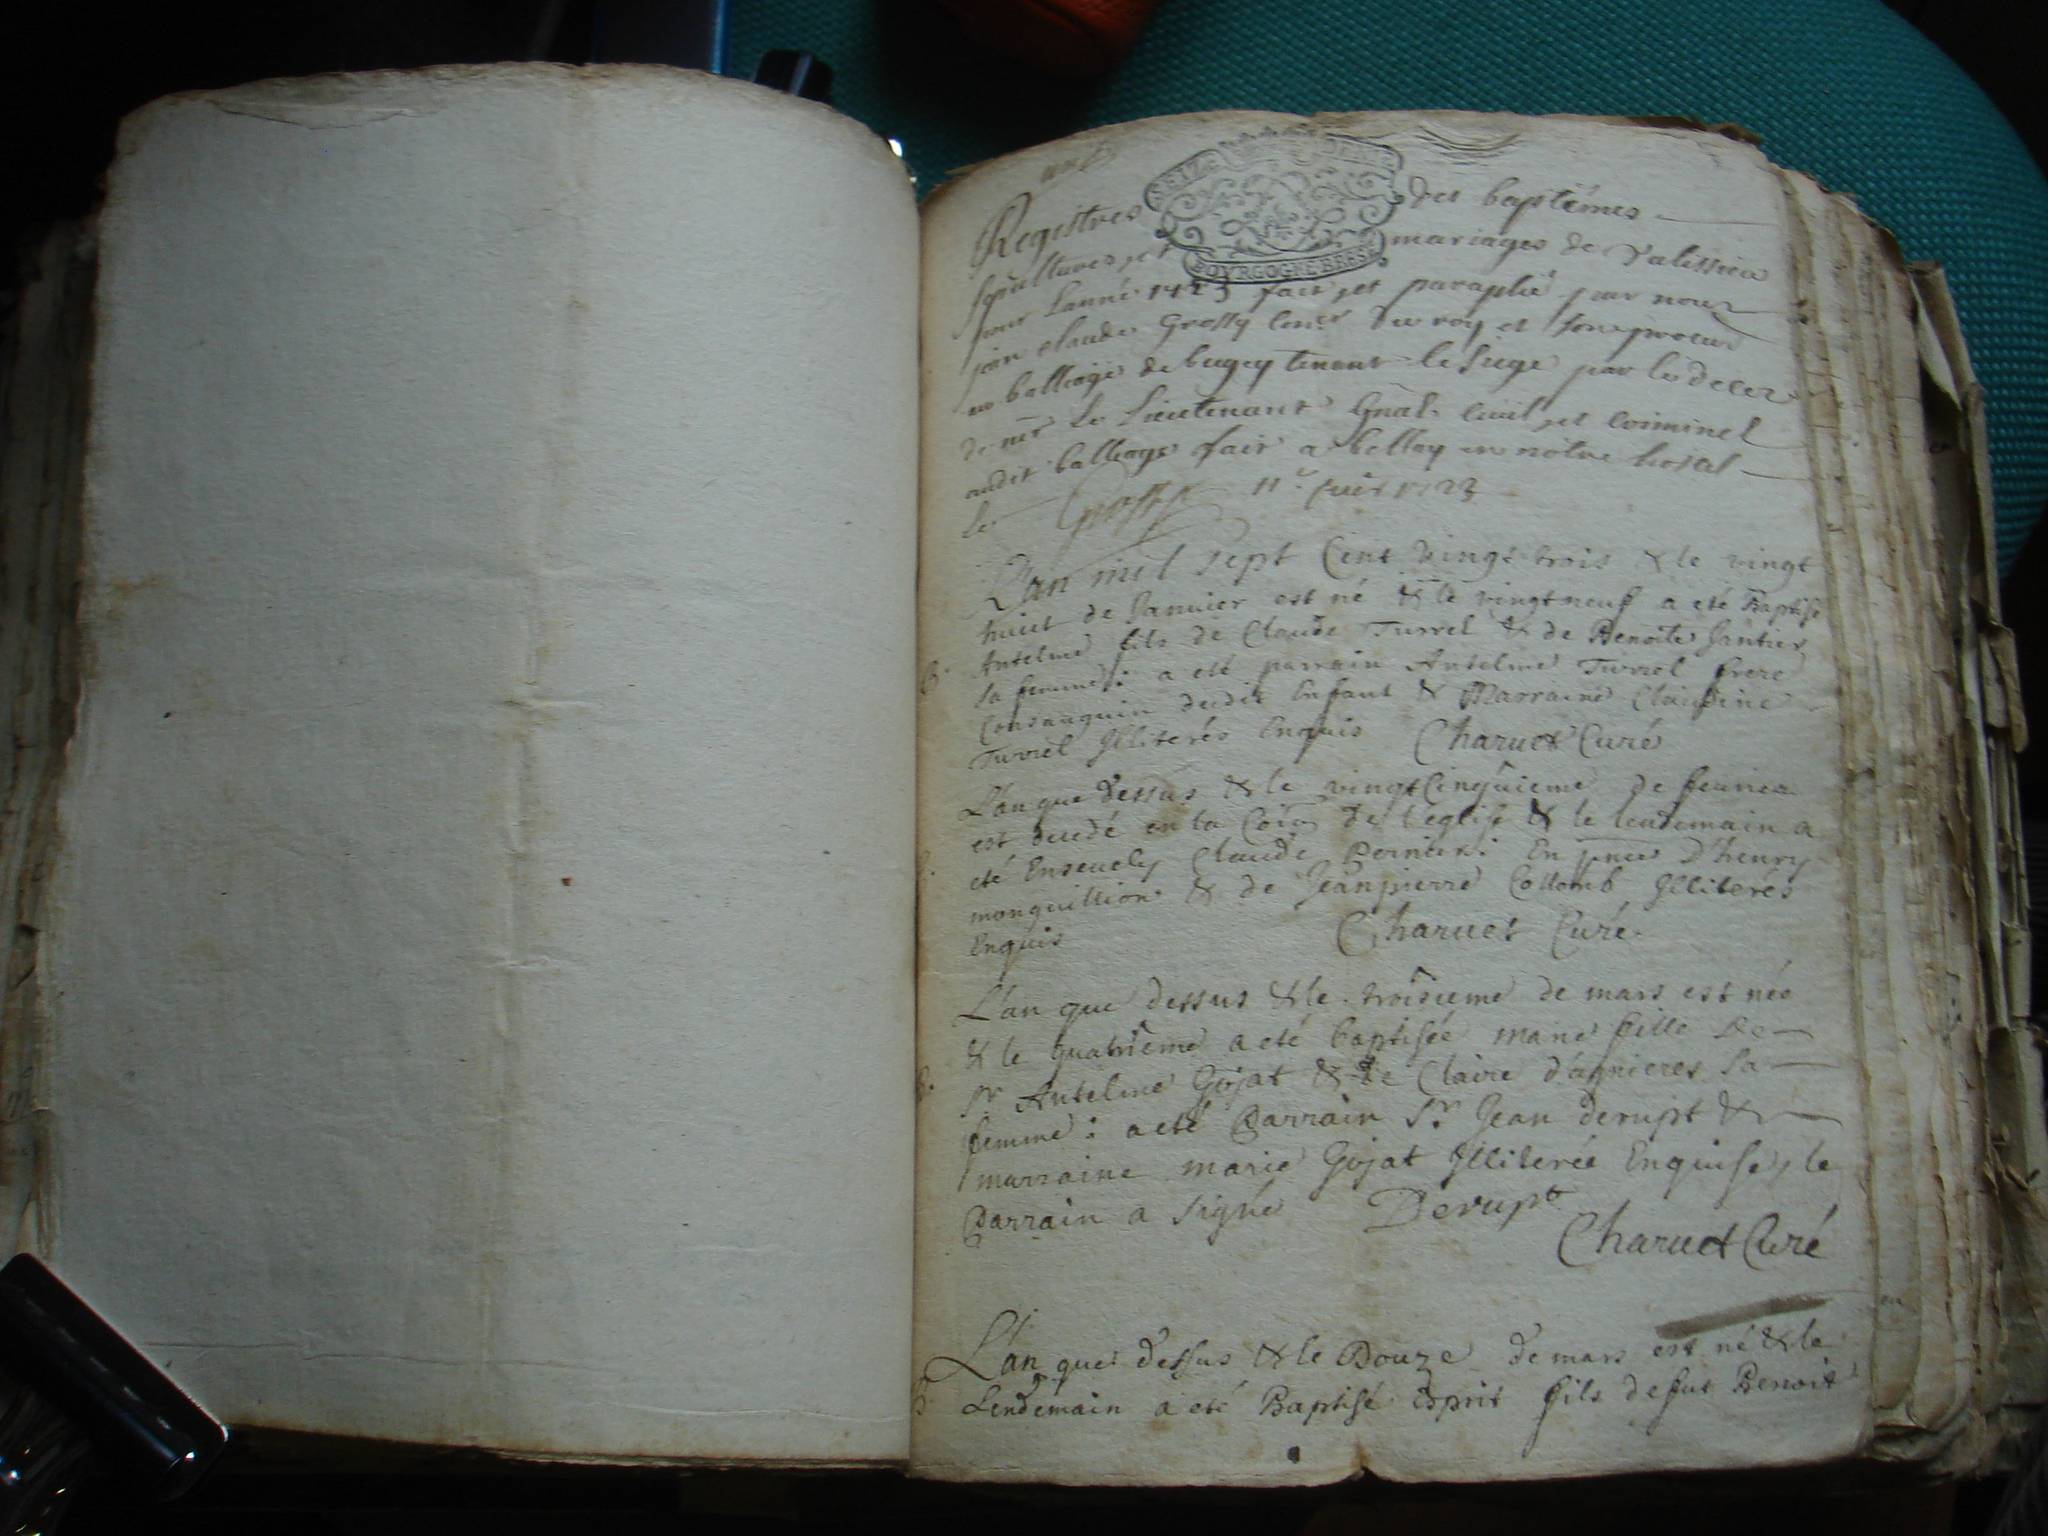 Registres des baptêmes
sepultures et mariages de Valissieu
pour lannée 1723 fait et paraphé par nous
jean claude Grossy du roy et son procur
au balliage de bugey tenant le siege par le deces
de mr Le Lieutenant Gnal Civil et Criminel
audit balliage fait a belley en notre hostel
Le Grossy 11e 1723
Lan mil sept Cent vingt trois & le vingt
huict de Januier est né & le vingtneuf a eté Baptisé
B. Antelme fils de Claude Turrel & de Benoite Gantier
sa femme : a eté parrain Antelme Turrel frere
Consanguin dudit Enfant & Marraine Claudine
Turrel Illiterés Enquis Charuet Curé
L'an que dessus & le vingtCinquieme de feurier
est decedé en la de l'eglise & le lendemain a
eté Enseuely Claude Pernier : En pnce D'henry
monguillion & de Jeanpierre Collomb Illiterés
Enquis Charuet Curé.
L'an que dessus & le troisieme de mars est née
& le quatrieme a eté baptisée marie fille de
B. Sr Antelme Gojat & de Claire d'agnieres sa
femme : a eté Parrain Sr Jean derupt &
marraine marie Gojat Illiterée Enquise, le
Parrain a signé Derupt
Charuet Curé
L'an que dessus & le Douze de mars est né & le
B. Lendemain a eté Baptisé Esprit fils de fut Benoit